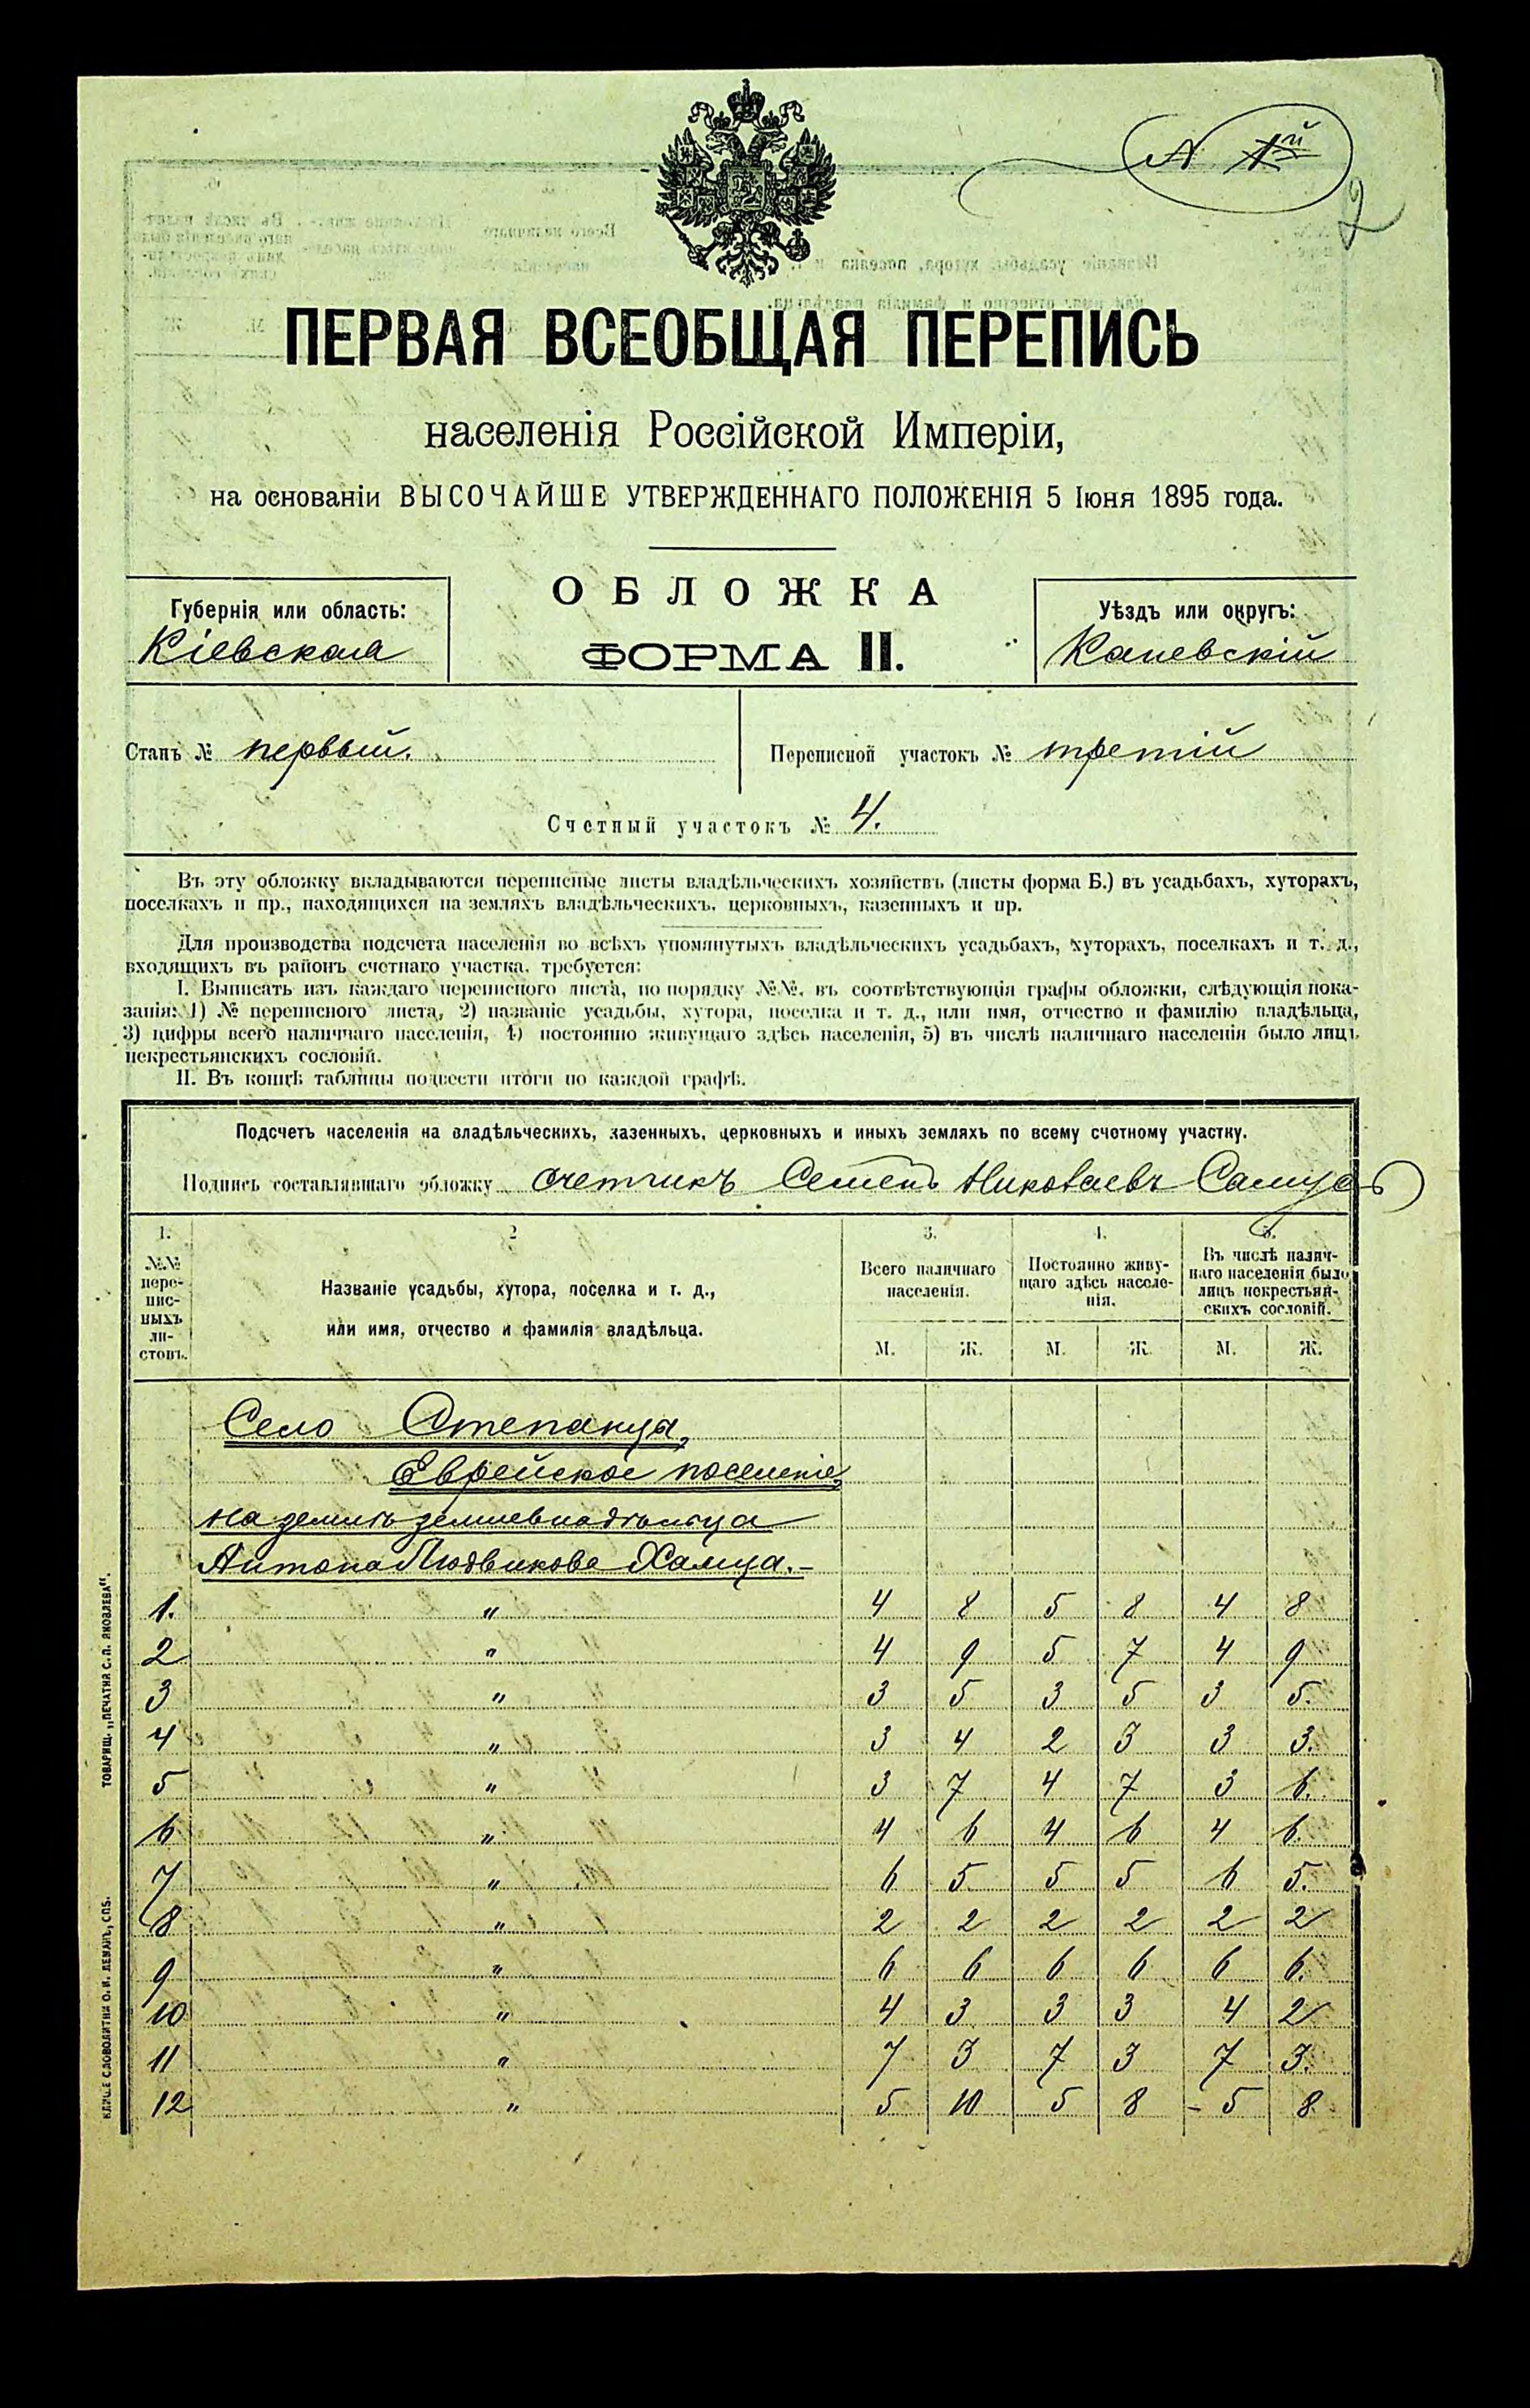 N 1й
2
ПЕРВАЯ ВСЕОБЩАЯ ПЕРЕПИСЬ
населенія Россійской Имперіи,
на основаніи ВЫСОЧАЙШЕ УТВЕРЖДЕННАГО ПОЛОЖЕНІЯ 5 Іюня 1895 года.
Губернія или область:
Кіевская
ОБЛОЖКА
ФОРМА II.
Уѣздъ или округъ:
Каневскій
Станъ № первый.
Переписной участокъ № третій
Счетный участокъ № 4.
Въ эту обложку вкладываются переписные листы владѣльческихъ хозяйствъ (листы форма Б.) въ усадьбахъ, хуторахъ,
поселкахъ и пр., находящихся на земляхъ владѣльческихъ, церковныхъ, казенныхъ и пр.
Для производства подсчета населенія во всѣхъ упомянутыхъ владѣльческихъ усадьбахъ, хуторахъ, поселкахъ и т. д.,
входящихъ въ районъ счетнаго участка, требуется:
I. Выписать изъ каждаго переписного листа, по порядку №№, въ соотвѣтствующія графы обложки, слѣдующія пока-
занія: 1) № переписного листа, 2) названіе усадьбы, хутора, поселка и т. д., или имя, отчество и фамилію владѣльца,
3) цифры всего наличнаго населенія, 4) постоянно живущаго здѣсь населенія, 5) въ числѣ наличнаго населенія было лицъ
некрестьянскихъ сословій.
II. Въ концѣ таблицы подвести итоги по каждой графѣ.
Подсчетъ населенія на владѣльческихъ, казенныхъ, церковныхъ и иныхъ земляхъ по всему счетному участку.
Подпись составлявшаго обложку счетчикъ Семенъ Николаевъ
1. 2 3. 4. 5.
№№ переписныхъ листовъ.
Названіе усадьбы, хутора, поселка и т. д.,
или имя, отчество и фамилія владѣльца.
Всего наличнаго населенія.
Постоянно живущаго здѣсь населенія.
Въ числѣ наличнаго населенія было лицъ некрестьянскихъ сословій.
М. Ж. М. Ж. М. Ж.
Село Степанцы,
Еврейское поселеніе,
на землѣ землевладѣльца
Антона Людвикова Хамца.-
1. " 4 8 5 8 4 8
2 " 4 9 5 7 4 9
3 " 3 5 3 5 3 5.
4 " 3 4 2 3 3 3.
5 " 3 7 4 7 3 6.
6 " 4 6 4 6 4 6.
7 " 6 5 5 5 6 5.
8 " 2 2 2 2 2 2
9 " 6 6 6 6 6 6.
10 " 4 3 3 3 4 2
11 " 7 3 7 3 7 3.
12 " 5 10 5 8 - 5 8
ТОВАРИЩ. „ПЕЧАТНЯ С. П. ЯКОВЛЕВА".
КЛИШЕ СЛОВОЛИТНИ О. И. ЛЕМАНЪ, СПБ.